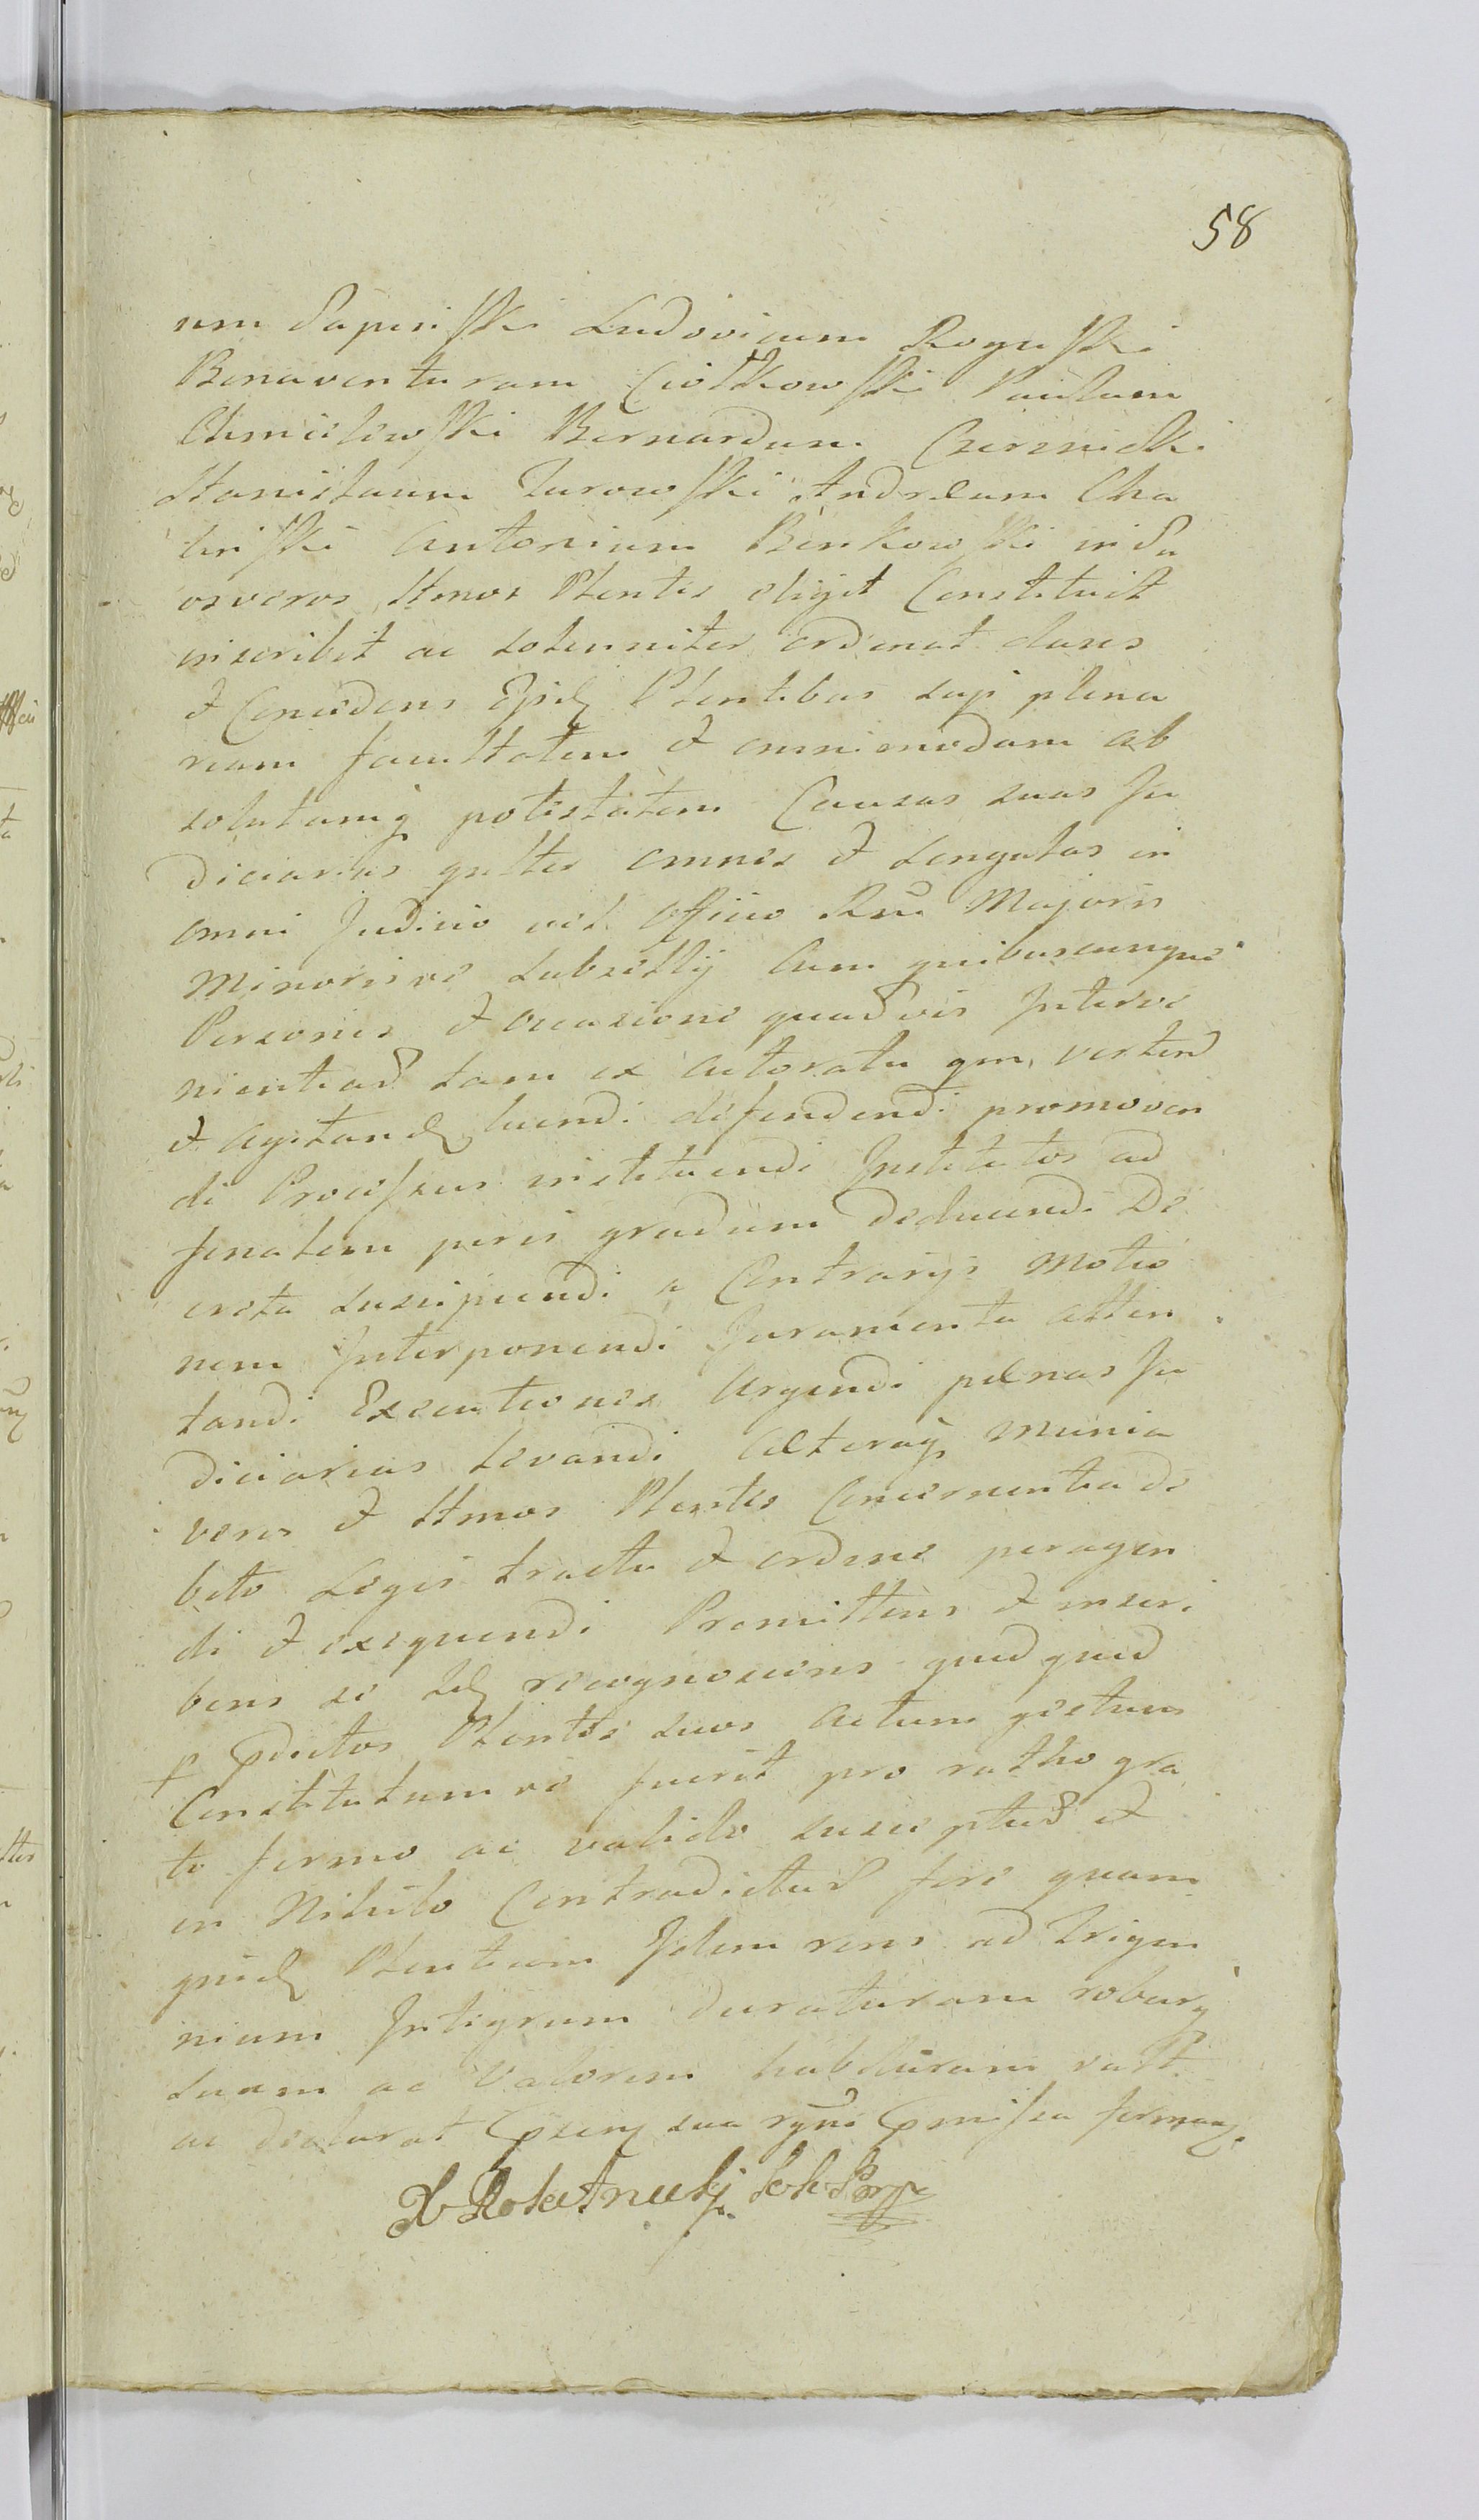 58
um Sapinski Ludovicum Roguski
Bonaventuram Ciołkowski Paulum
Chmielewski Bernardum Czernicki
Stanislaum Turowski Andream Cha
linski Antonium Binkowski in Su
os veros ltmos Plentes eligit Constituit
inscribit ac solenniter ordinat dans
et Concedens Ejsd Plentibus suis plena
riam facultatem et omnimodam ab
solutamq potestatem Causas suas Ju
diciarias gnlter omnes et singulas in
omni Judicio vel Officio Rni Majoris
Minorisve Subsellij Cum quibuscunque
Personis et occasione quadvis Interve
nientiad tam ex Actoratu qm vertend
et agitand luendi defendendi promoven
di Processus instituendi Institutos ad
finalem juris gradum deducendi De
creta suscipiendi a Contrarijs Motio
nem Interponendi Juramenta atten
tandi Executiones Urgendi pænas Ju
diciarias levandi Cæteraq munia
veros et ltmos Plentes Concernentia de
bito Legis tractu et ordine peragen
di et exequendi Promittens et inscri
bens se Id recognoscens quidquid
p Pdictos Plentes suos Actum gestum
Constitutumve fuerit pro ratho gra
to firmo ac valido suscepturd et
in Nihilo Contradicturd fore quam
quid Plentiam Idem rens ad Trigin
nium Integrum duraturam roburq
suum ac Valorem habituram vult
ac declarat Psenq sua rgni Pmissa firmaq